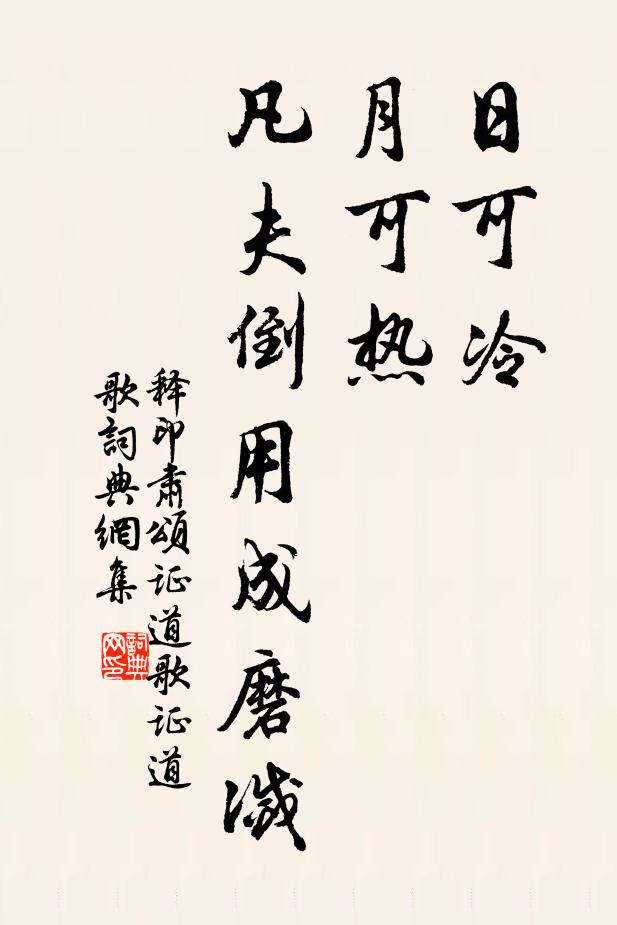 日可冷
月可热
凡夫倒用成磨滅
释印肃頌证道歌证道
歌詞典網集
詞典
网印